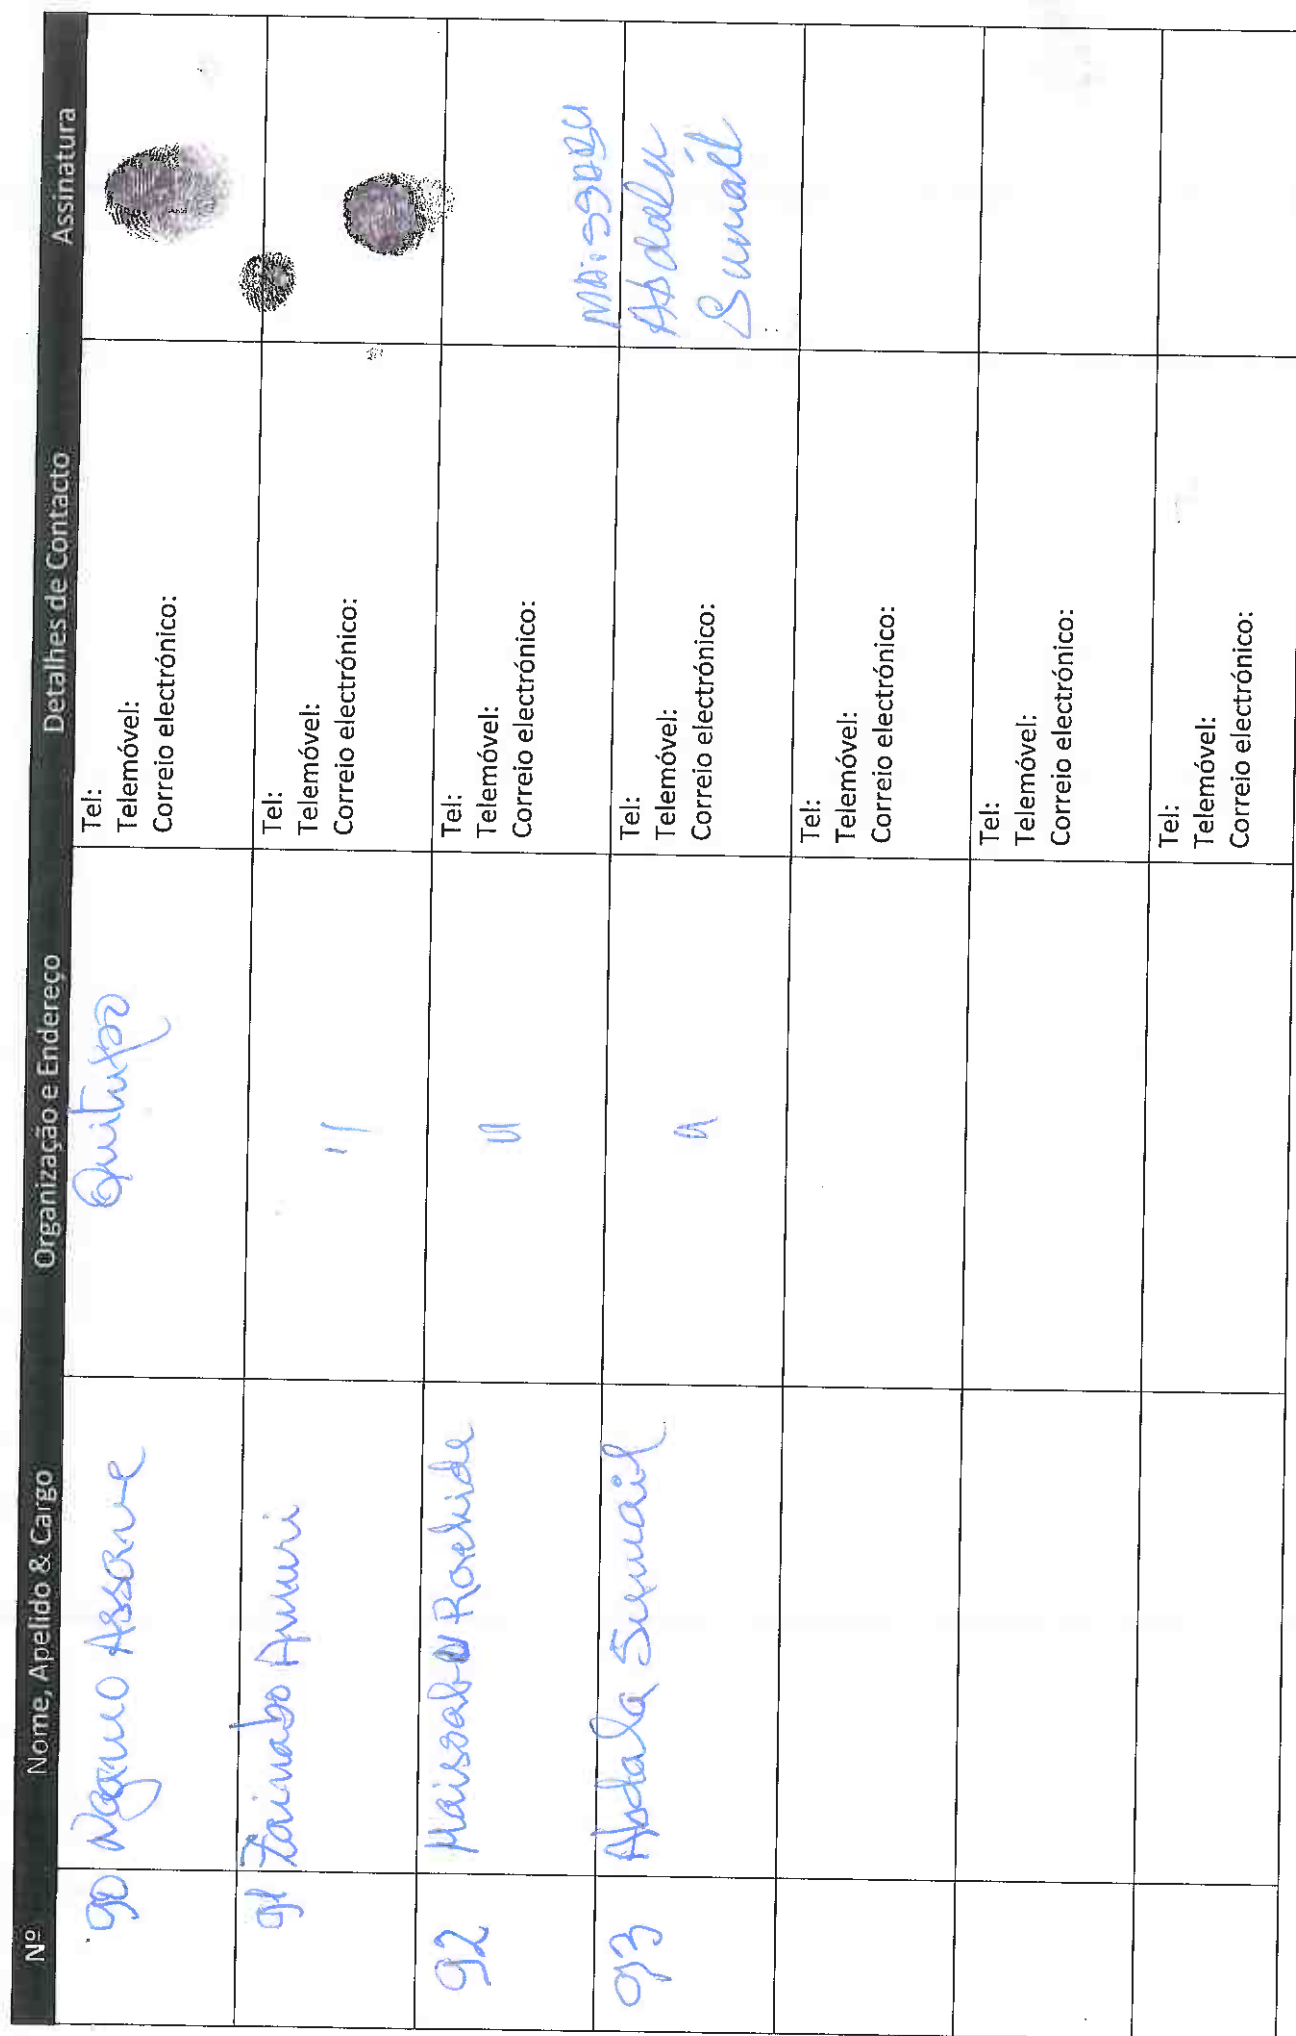 Nº Nome, Apelido & Cargo Organização e Endereço Detalhes de Contacto Assinatura
90 Assane Quitupo Tel:
Telemóvel:
Correio electrónico:
91 Zainabo Amuri 11 Tel:
Telemóvel:
Correio electrónico:
92 Maissaba Rachide 11 Tel:
Telemóvel:
Correio electrónico:
93 Abdala Sumail 11 Tel:
Telemóvel:
Correio electrónico:
Abdala
Sumail
Tel:
Telemóvel:
Correio electrónico:
Tel:
Telemóvel:
Correio electrónico:
Tel:
Telemóvel:
Correio electrónico: